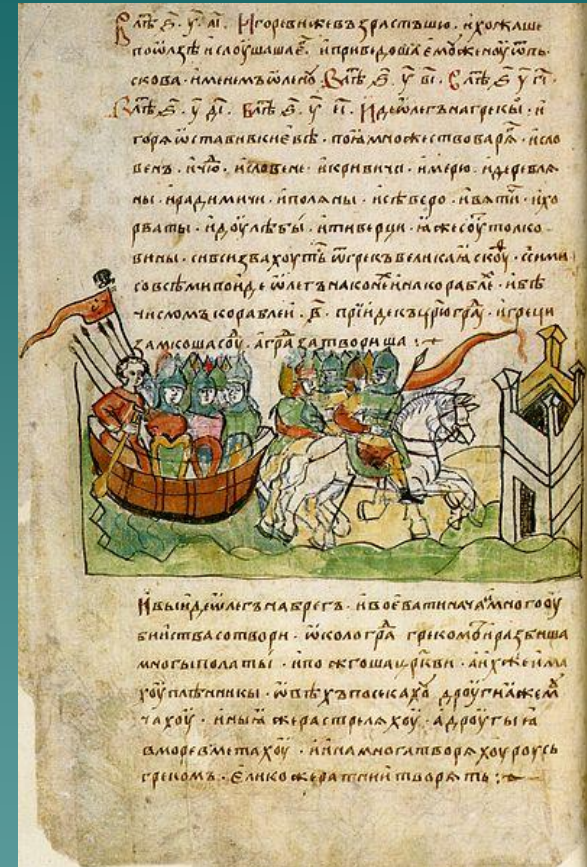 В лѣт҃ ѕ҃ . у҃ . аı҃ . Игореви же възрастъшю . и хожаше
по ѡлзѣ и слоушаша е҃ . и приведоша ємоу женоу ѿ пь
скова . именемъ ѡленоу . В лѣт҃ ѕ҃ . у҃ вı҃ . В лѣт҃ ѕ҃ у҃ гı҃ .
В лѣт҃ ѕ҃ . у҃ дı҃ . В лѣт҃ ѕ҃ . у҃ еı҃ . Иде ѡлегъ на грекы . и
горѧ ѡставивъ киевѣ . поꙗ множество варѧ . и сло
венъ . и чю . и словене . и кривичи . и мерю . и деревлѧ
ны . и радимичи . и полѧны . и сѣверо . и вѧтичи . и хо
рваты . и доулѣбы . и тиверци . ꙗже соуть толко
вины . си вси звахоуть ѿ грекъ великаꙗ скоуѳ . с сими
со всѣми поиде ѡлегъ на конехъ и на кораблѣ . и бѣ
числомъ кораблеи . в҃ . прїиде къ цр҃ю градоу . и греци
замкоша соудъ . а градъ затвориша :
И выиде ѡлегъ на брегъ . и воевати нача . и много оу
биства сотвори . ѡколо града грекомъ . и разбиша
многы полаты . и пожгоша церкви . а ихже има
хоу плѣнникы . ѡвѣхъ посекахоу дроугиꙗ же м
чахоу . иныꙗ же растрелѧхоу . а дроугыꙗ
в море вметахоу . и ина многа творѧхоу роусь
грекомъ . елико же ратнии творѧть :